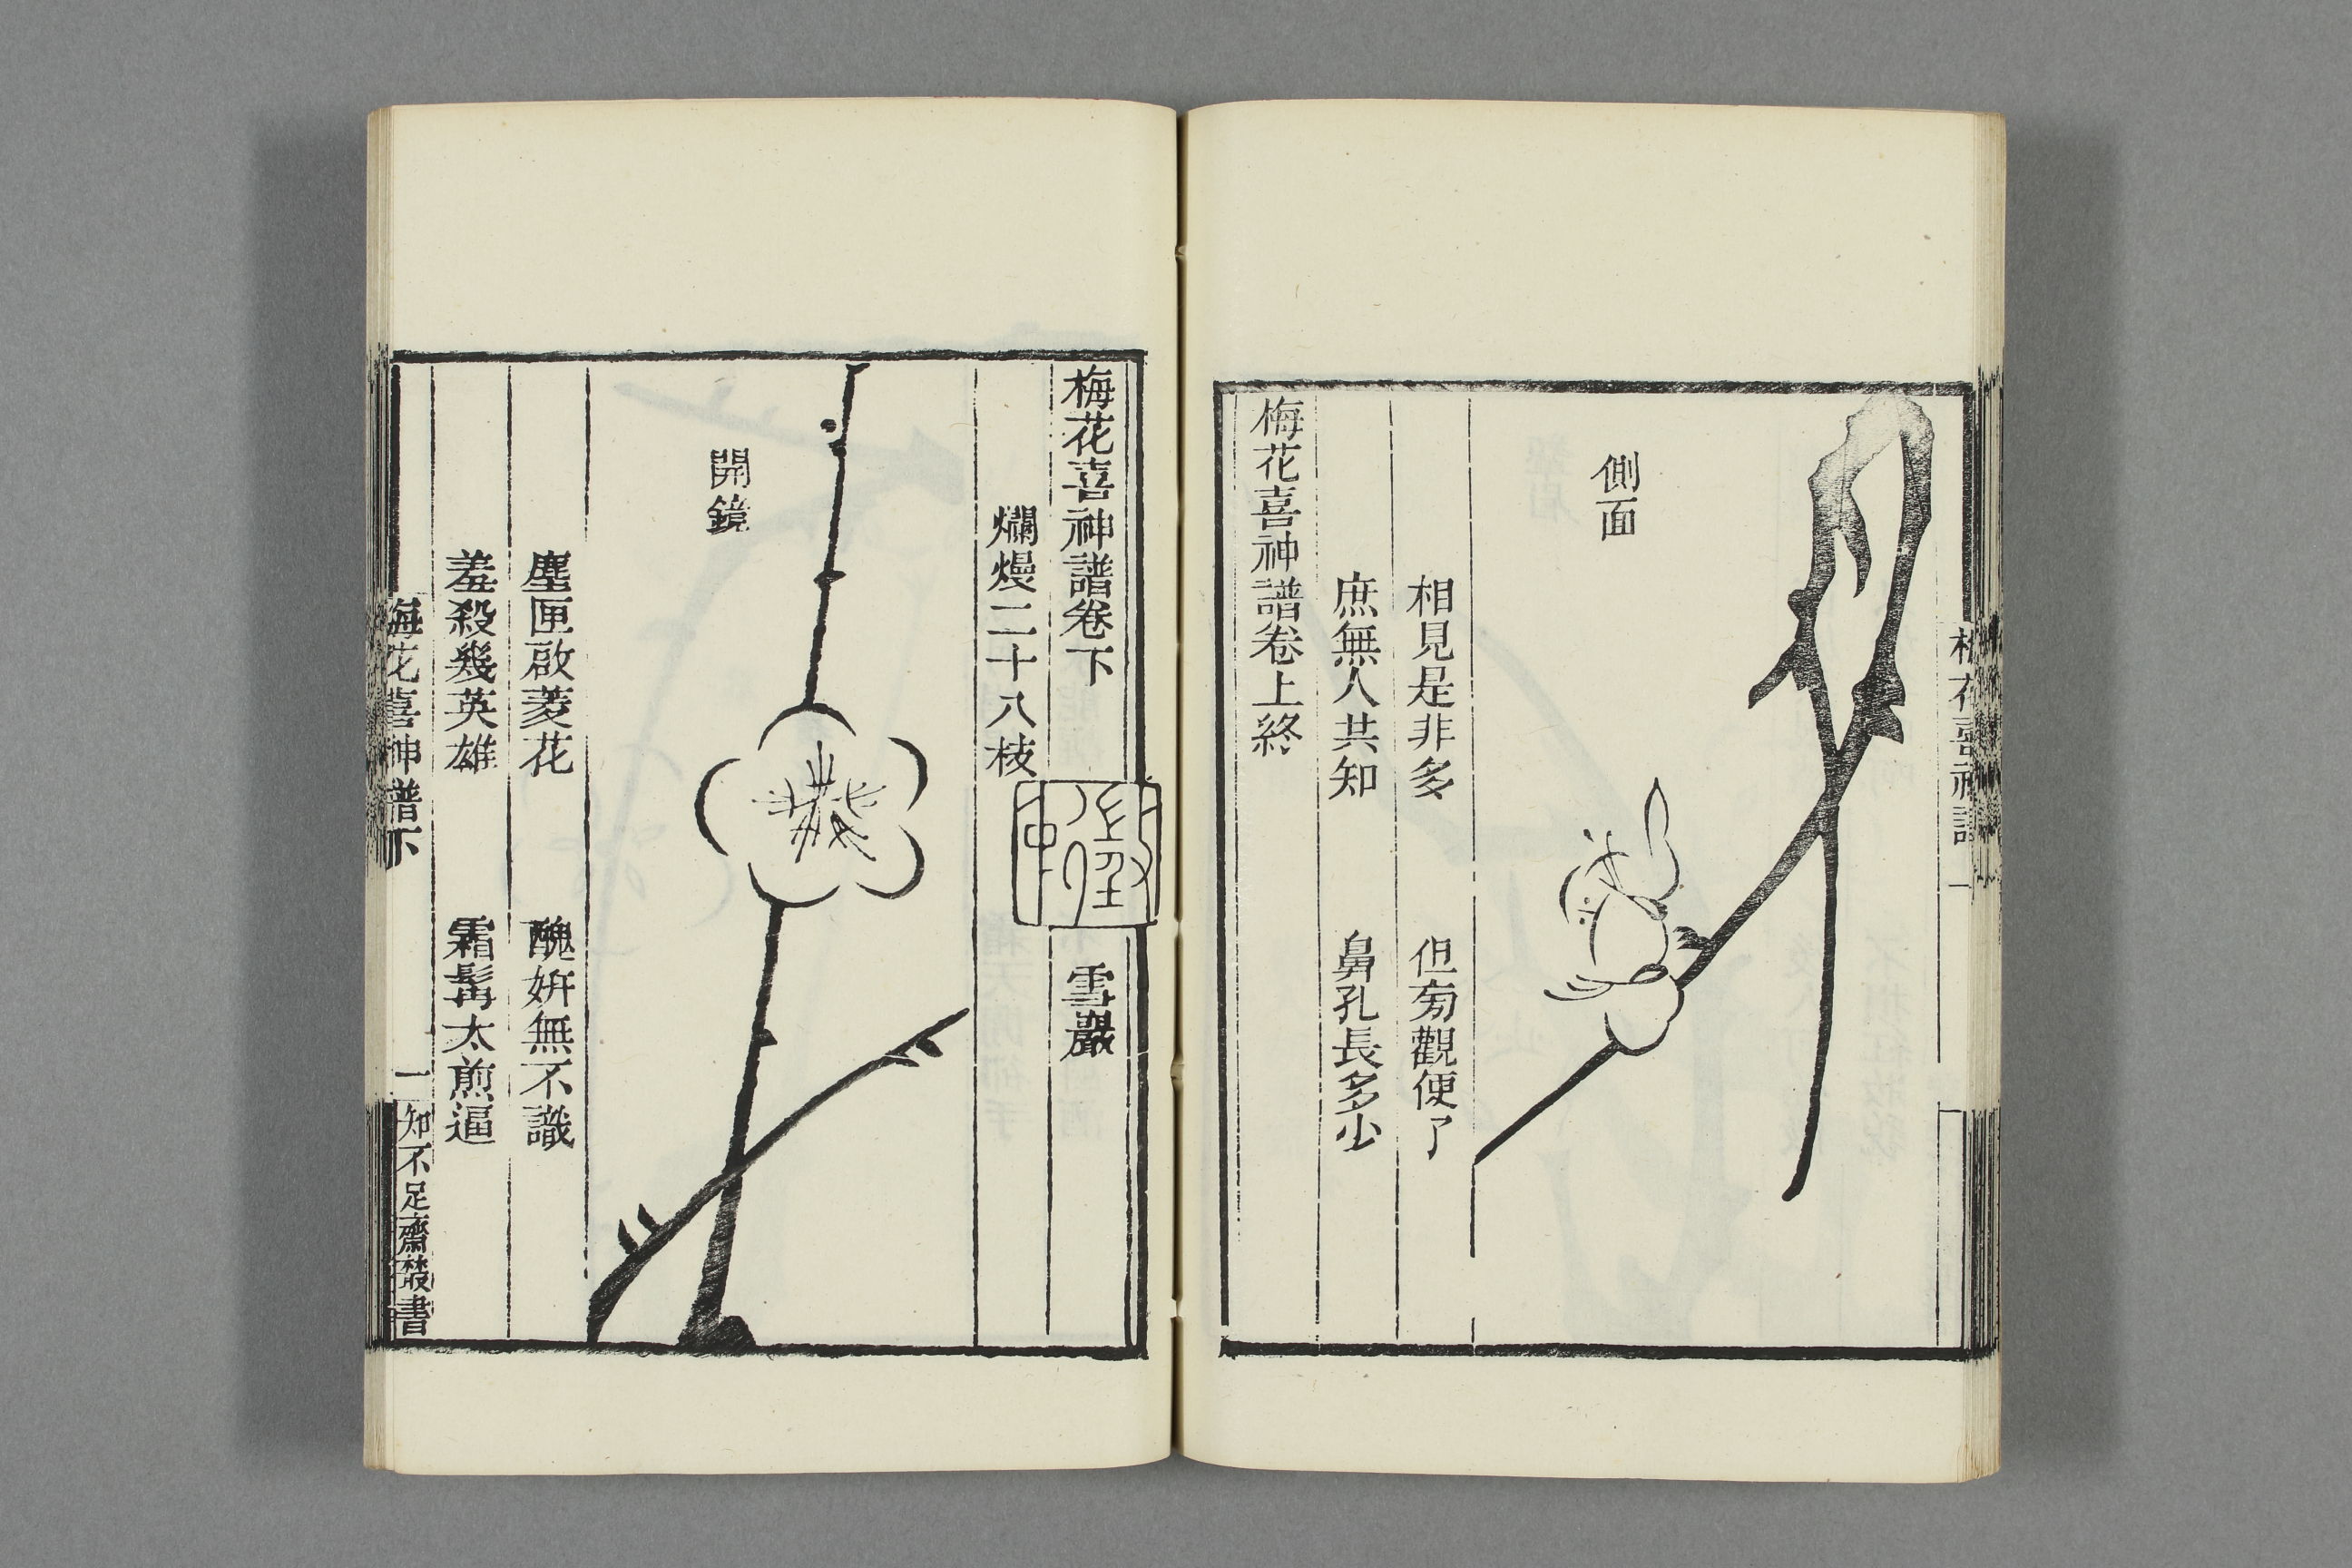 梅花喜神譜
一
側面
相見是非多　但旁觀便了
庶無人共知　鼻孔長多少
梅花喜神譜卷上終
梅花喜神譜卷下　雪巖
爛熳二十八枝
開鏡
塵匣啟菱花　醜妍無不識
羞殺幾英雄　霜髯太煎逼
梅花喜神譜下
一
知不足齋叢書